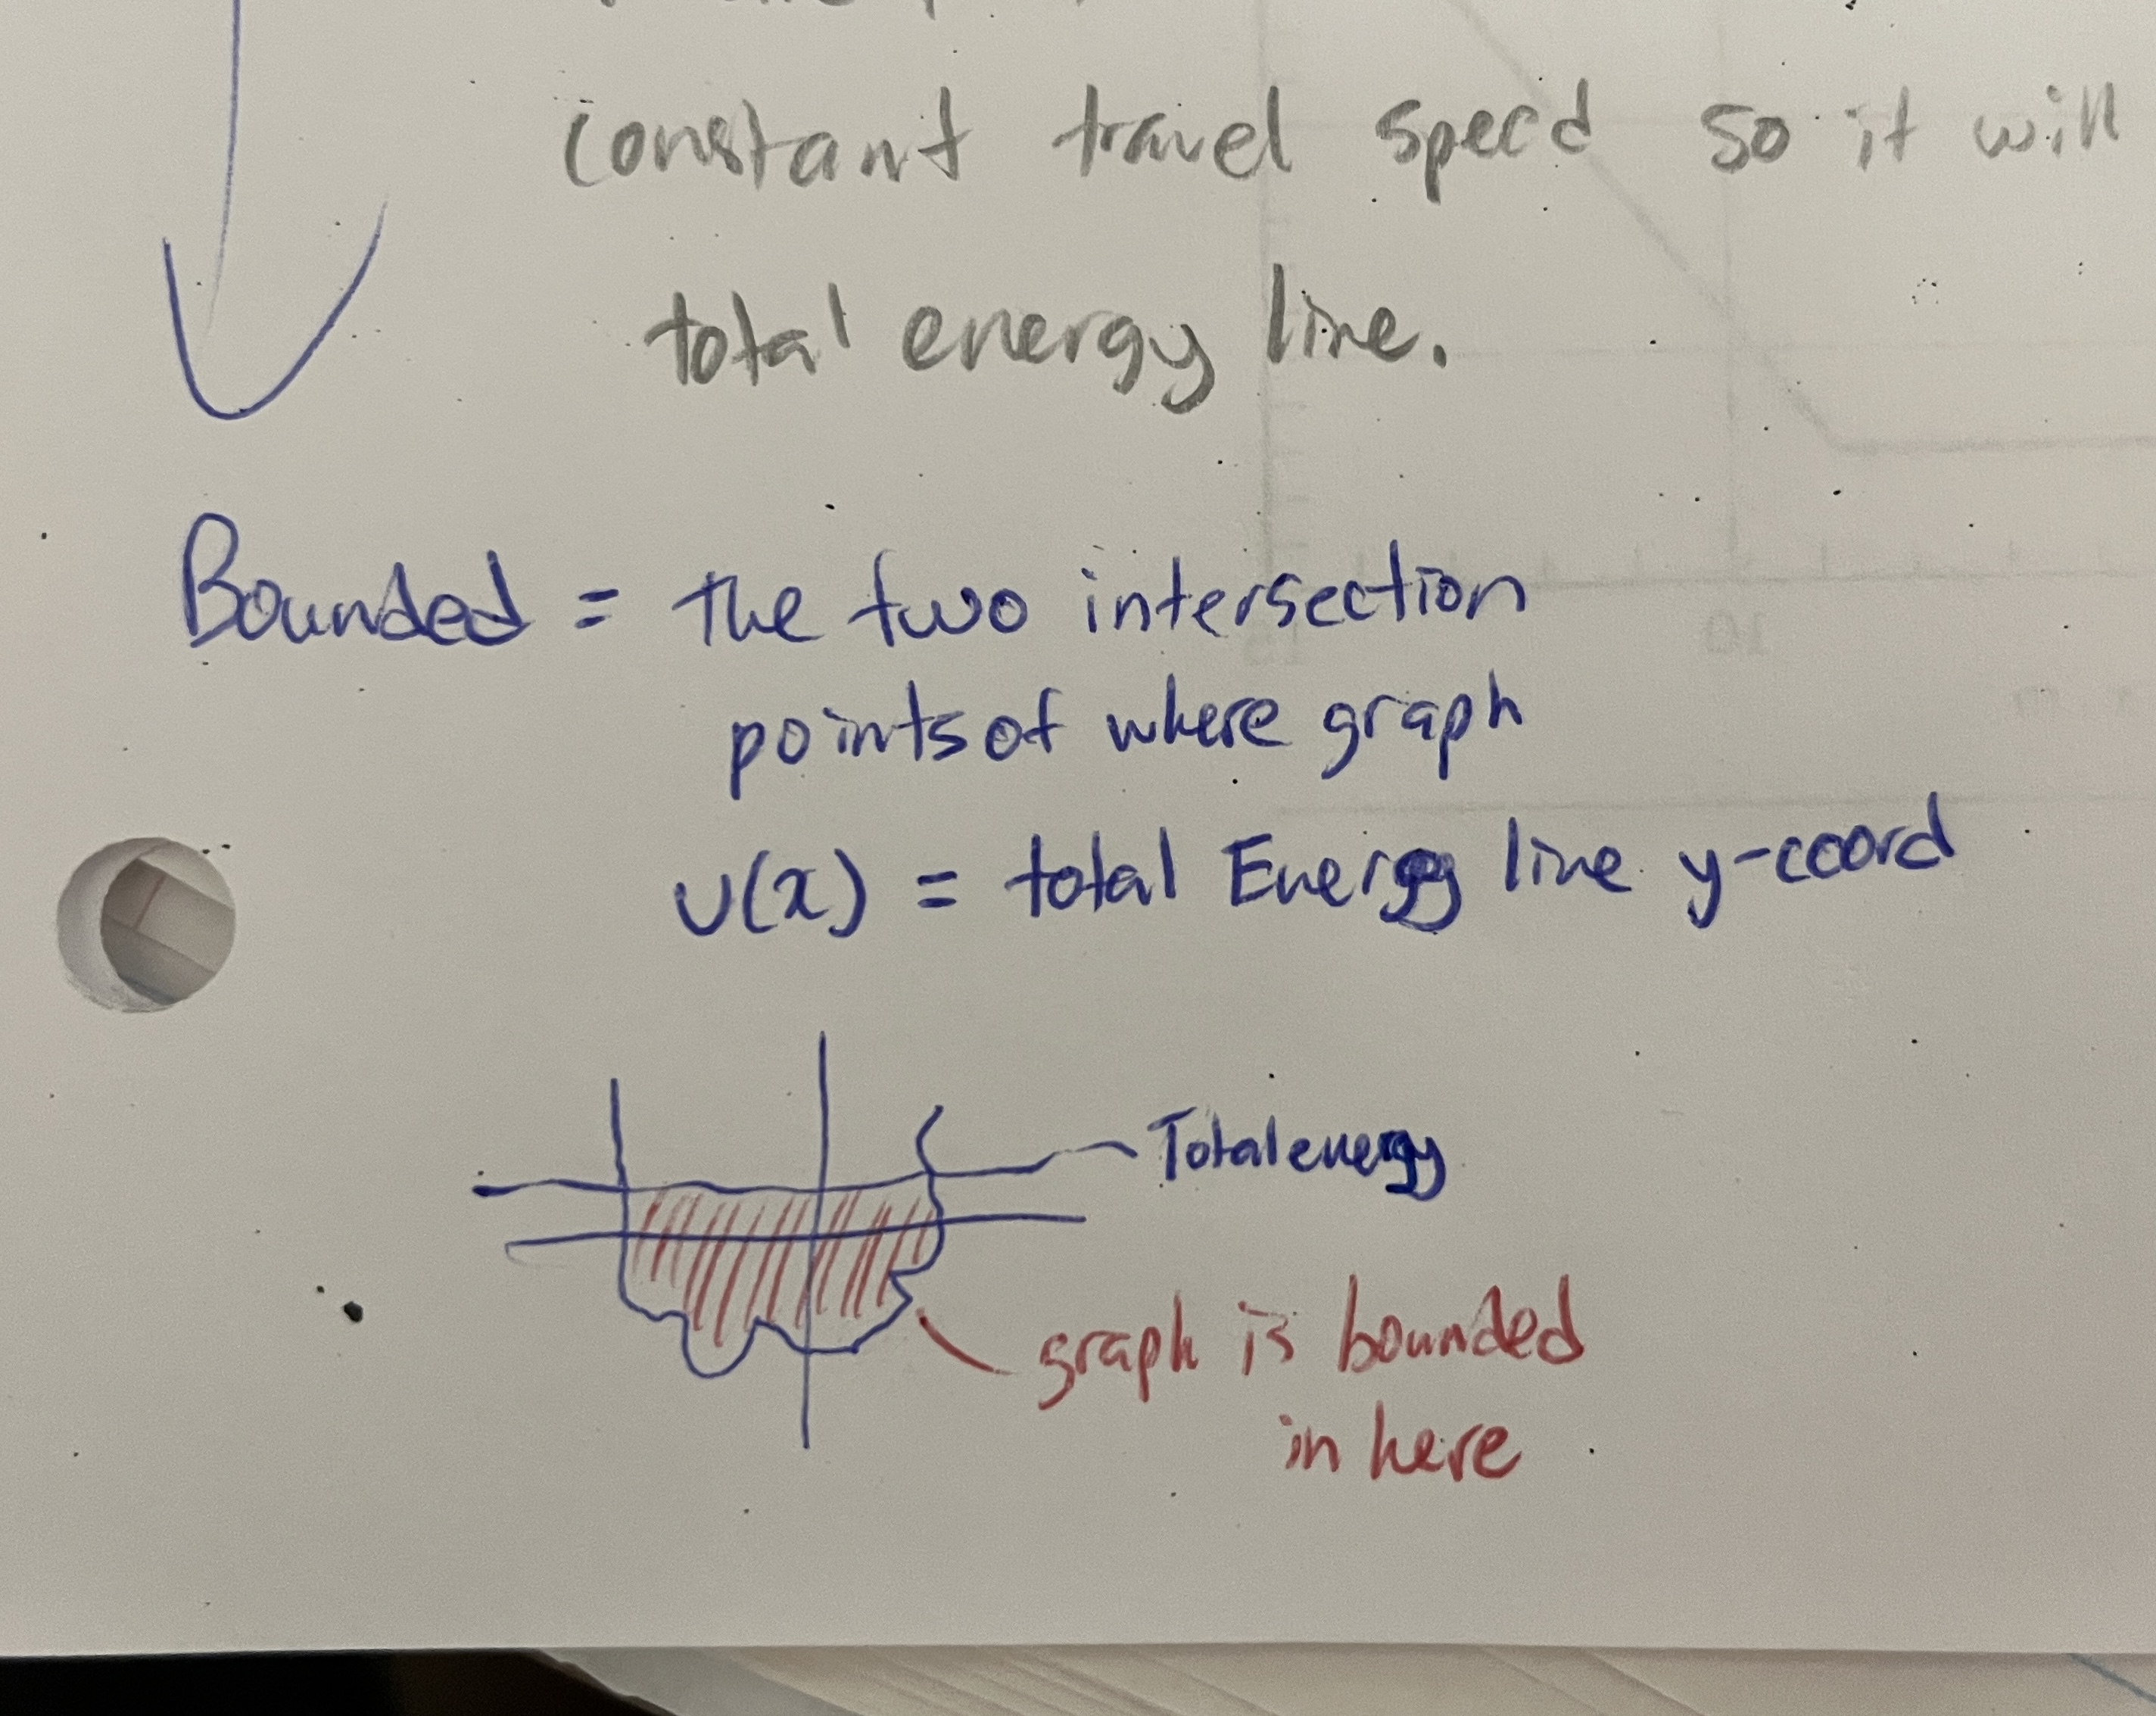 constant travel speed so it will
total energy line.
Bounded = The two intersection
points of where graph
U(x) = total Energy line y-coord
Total energy
graph is bounded
in here
10